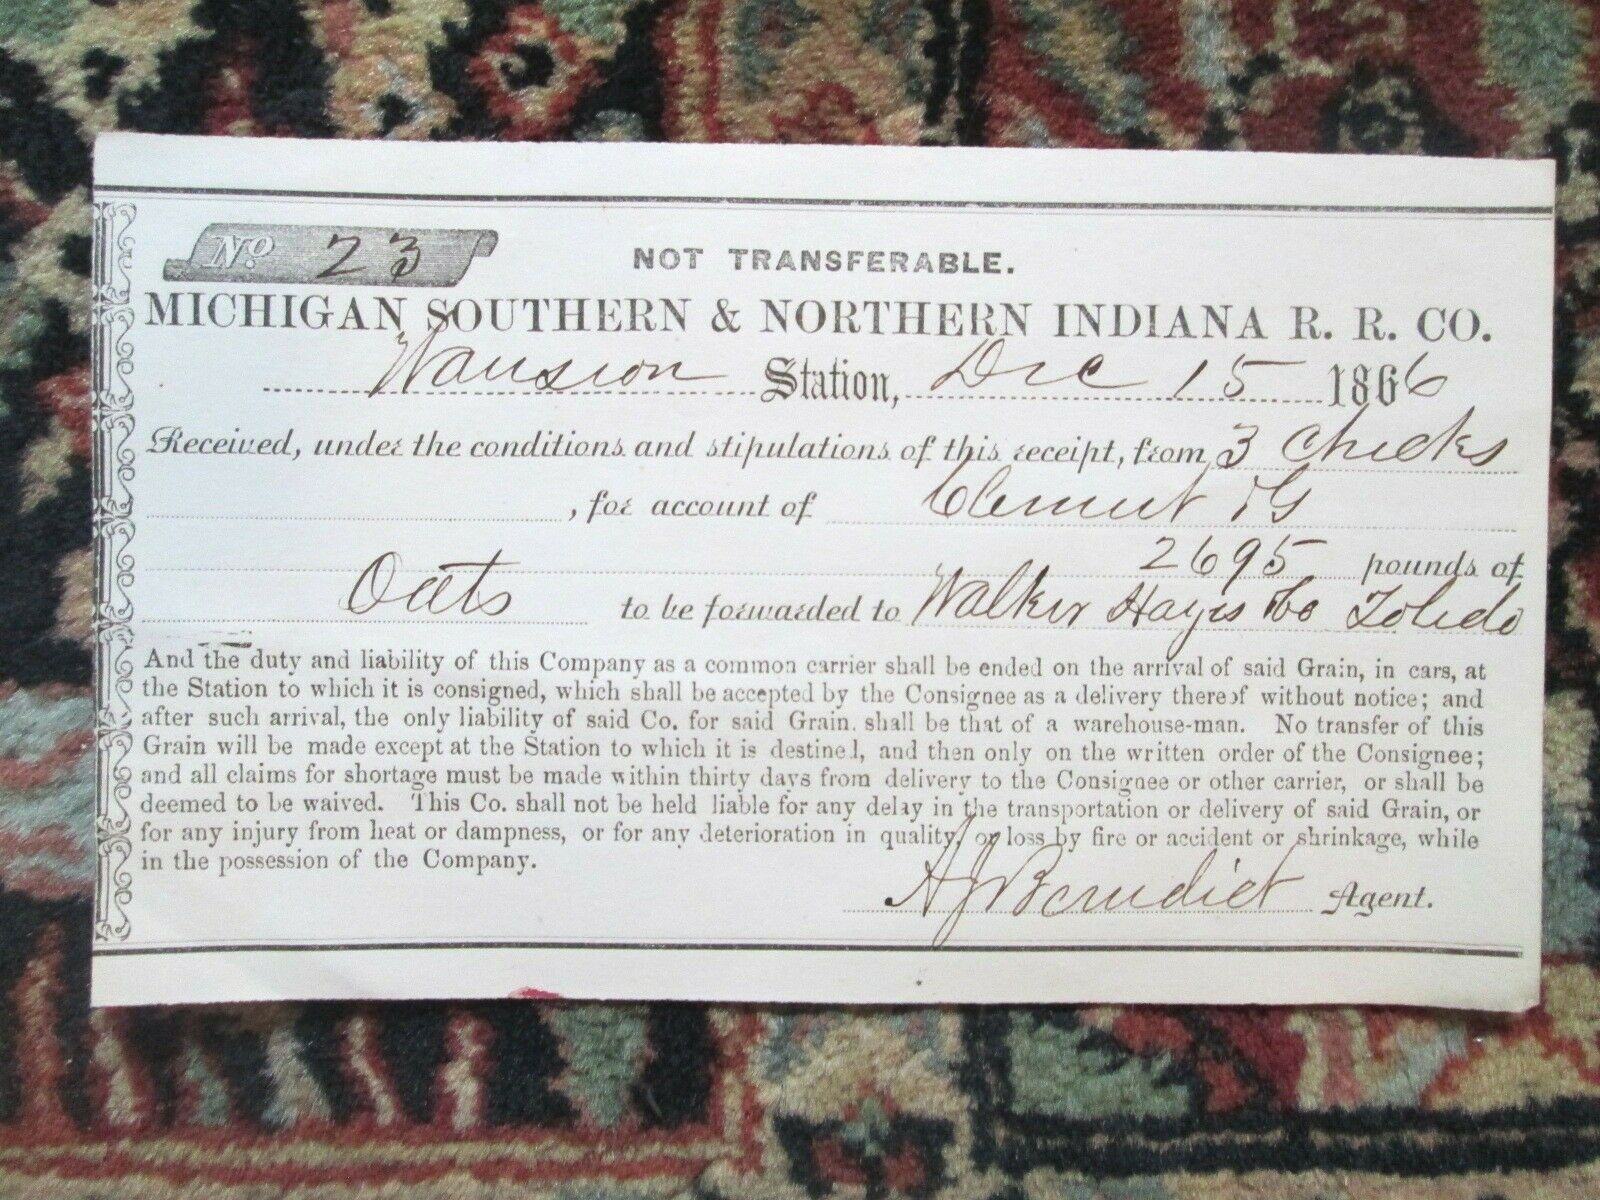 No. 23
NOT TRANSFERABLE.
MICHIGAN SOUTHERN & NORTHERN INDIANA R. R. CO.
Wauseon Station, Dec 15 1866
Received, under the conditions and stipulations of this receipt, from 3 Checks
, for account of Clement
2695 pounds of
Oats to be forwarded to Walker Hayes & Co Toledo
And the duty and liability of this Company as a common carrier shall be ended on the arrival of said Grain, in cars, at
the Station to which it is consigned, which shall be accepted by the Consignee as a delivery thereof without notice; and
after such arrival, the only liability of said Co. for said Grain, shall be that of a warehouse-man. No transfer of this
Grain will be made except at the Station to which it is destined, and then only on the written order of the Consignee;
and all claims for shortage must be made within thirty days from delivery to the Consignee or other carrier, or shall be
deemed to be waived. This Co. shall not be held liable for any delay in the transportation or delivery of said Grain, or
for any injury from heat or dampness, or for any deterioration in quality, or loss by fire or accident or shrinkage, while
in the possession of the Company.
A J Benedict Agent.